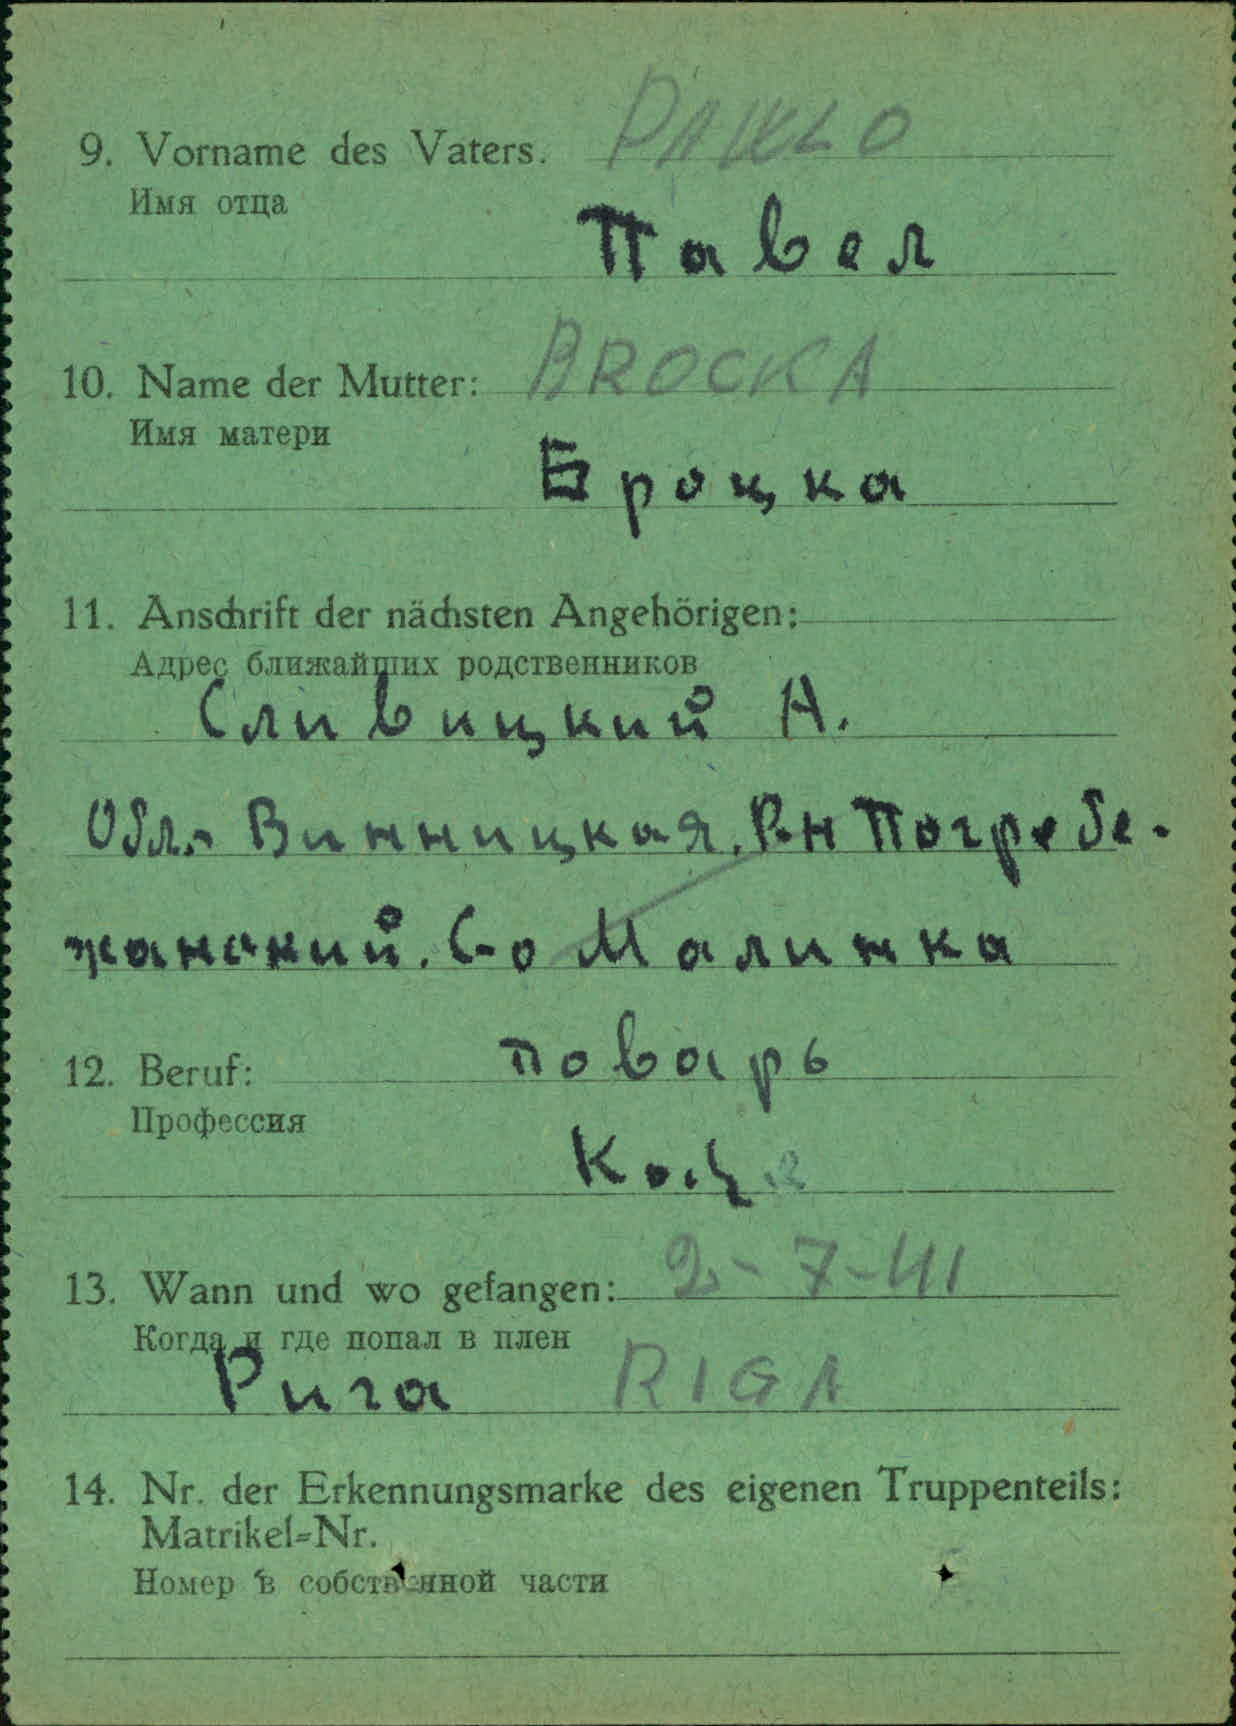 PAWLO
9. Vorname des Vaters.
Имя отца
Павел
BROCKA
10. Name der Mutter:
Имя матери
Броцка
11. Anschrift der nächsten Angehörigen:
Адрес ближайших родственников
Сливицкий А.
Обл. Винницкая. Р-н Погребе-
жанский. С-о Малинка
12. Beruf: поварь
Профессия
13. Wann und wo gefangen: 2-7-41
Когда и где попал в плен
Рига RIGA
14. Nr. der Erkennungsmarke des eigenen Truppenteils:
Matrikel-Nr.
Номер в собственной части